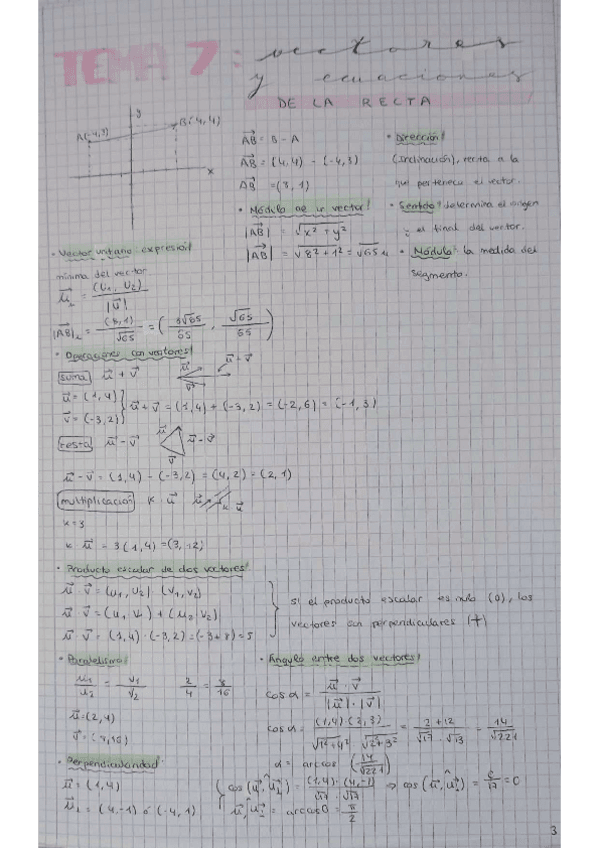 TEMA 7: vectores
y ecuaciones
DE LA RECTA
y
A(-4,3)
B(4,4)
x
AB⃗ = B - A
AB⃗ = (4,4) - (-4,3)
AB⃗ = (8,1)
· Módulo de un vector!
|AB⃗| = √x² + y²
|AB⃗| = √8² + 1² = √65 u
· Dirección!
(inclinación), recta a la
que pertenece el vector.
· Sentido! determina el origen
y el final del vector.
· Módulo! la medida del
segmento.
· Vector unitario: expresión
mínima del vector
u⃗ = (u₁, u₂) / |v⃗|
|AB⃗| = (8,1) / √65 = (8√65 / 65, √65 / 65)
· Operaciones con vectores!
suma u⃗ + v⃗
u⃗ v⃗ u⃗ + v⃗
u⃗ = (1,4)
v⃗ = (-3,2)
u⃗ + v⃗ = (1,4) + (-3,2) = (-2,6) = (-1,3)
resta u⃗ - v⃗
u⃗ v⃗ u⃗ - v⃗
u⃗ - v⃗ = (1,4) - (-3,2) = (4,2) = (2,1)
multiplicación K · u⃗
u⃗ K u⃗
K = 3
K u⃗ = 3(1,4) = (3,12)
· Producto escalar de dos vectores!
u⃗ · v⃗ = (u₁, u₂) · (v₁, v₂)
u⃗ · v⃗ = (u₁ v₁) + (u₂ v₂)
u⃗ · v⃗ = (1,4) · (-3,2) = (-3+8) = 5
si el producto escalar es nulo (0), los
vectores son perpendiculares (+)
· Paralelismo!
u₁/u₂ = v₁/v₂ 2/4 = 8/16
u⃗ = (2,4)
v⃗ = (8,16)
· Perpendicularidad:
u⃗ = (1,4)
u⃗₂ = (4,-1) ó (-4,1)
· Ángulo entre dos vectores!
cos α = u⃗ · v⃗ / |u⃗| · |v⃗|
cos α = (1,4)·(2,3) / √1²+4² · √2²+3² = 2+12 / √17 · √13 = 14 / √221
α = arccos (14/√221)
cos (u⃗, u⃗₂) = (1,4)·(4,-1) / √17 · √17 ⇒ cos (u⃗, u⃗₂) = 0/17 = 0
u⃗, u⃗₂ = arccos 0 = π/2
3